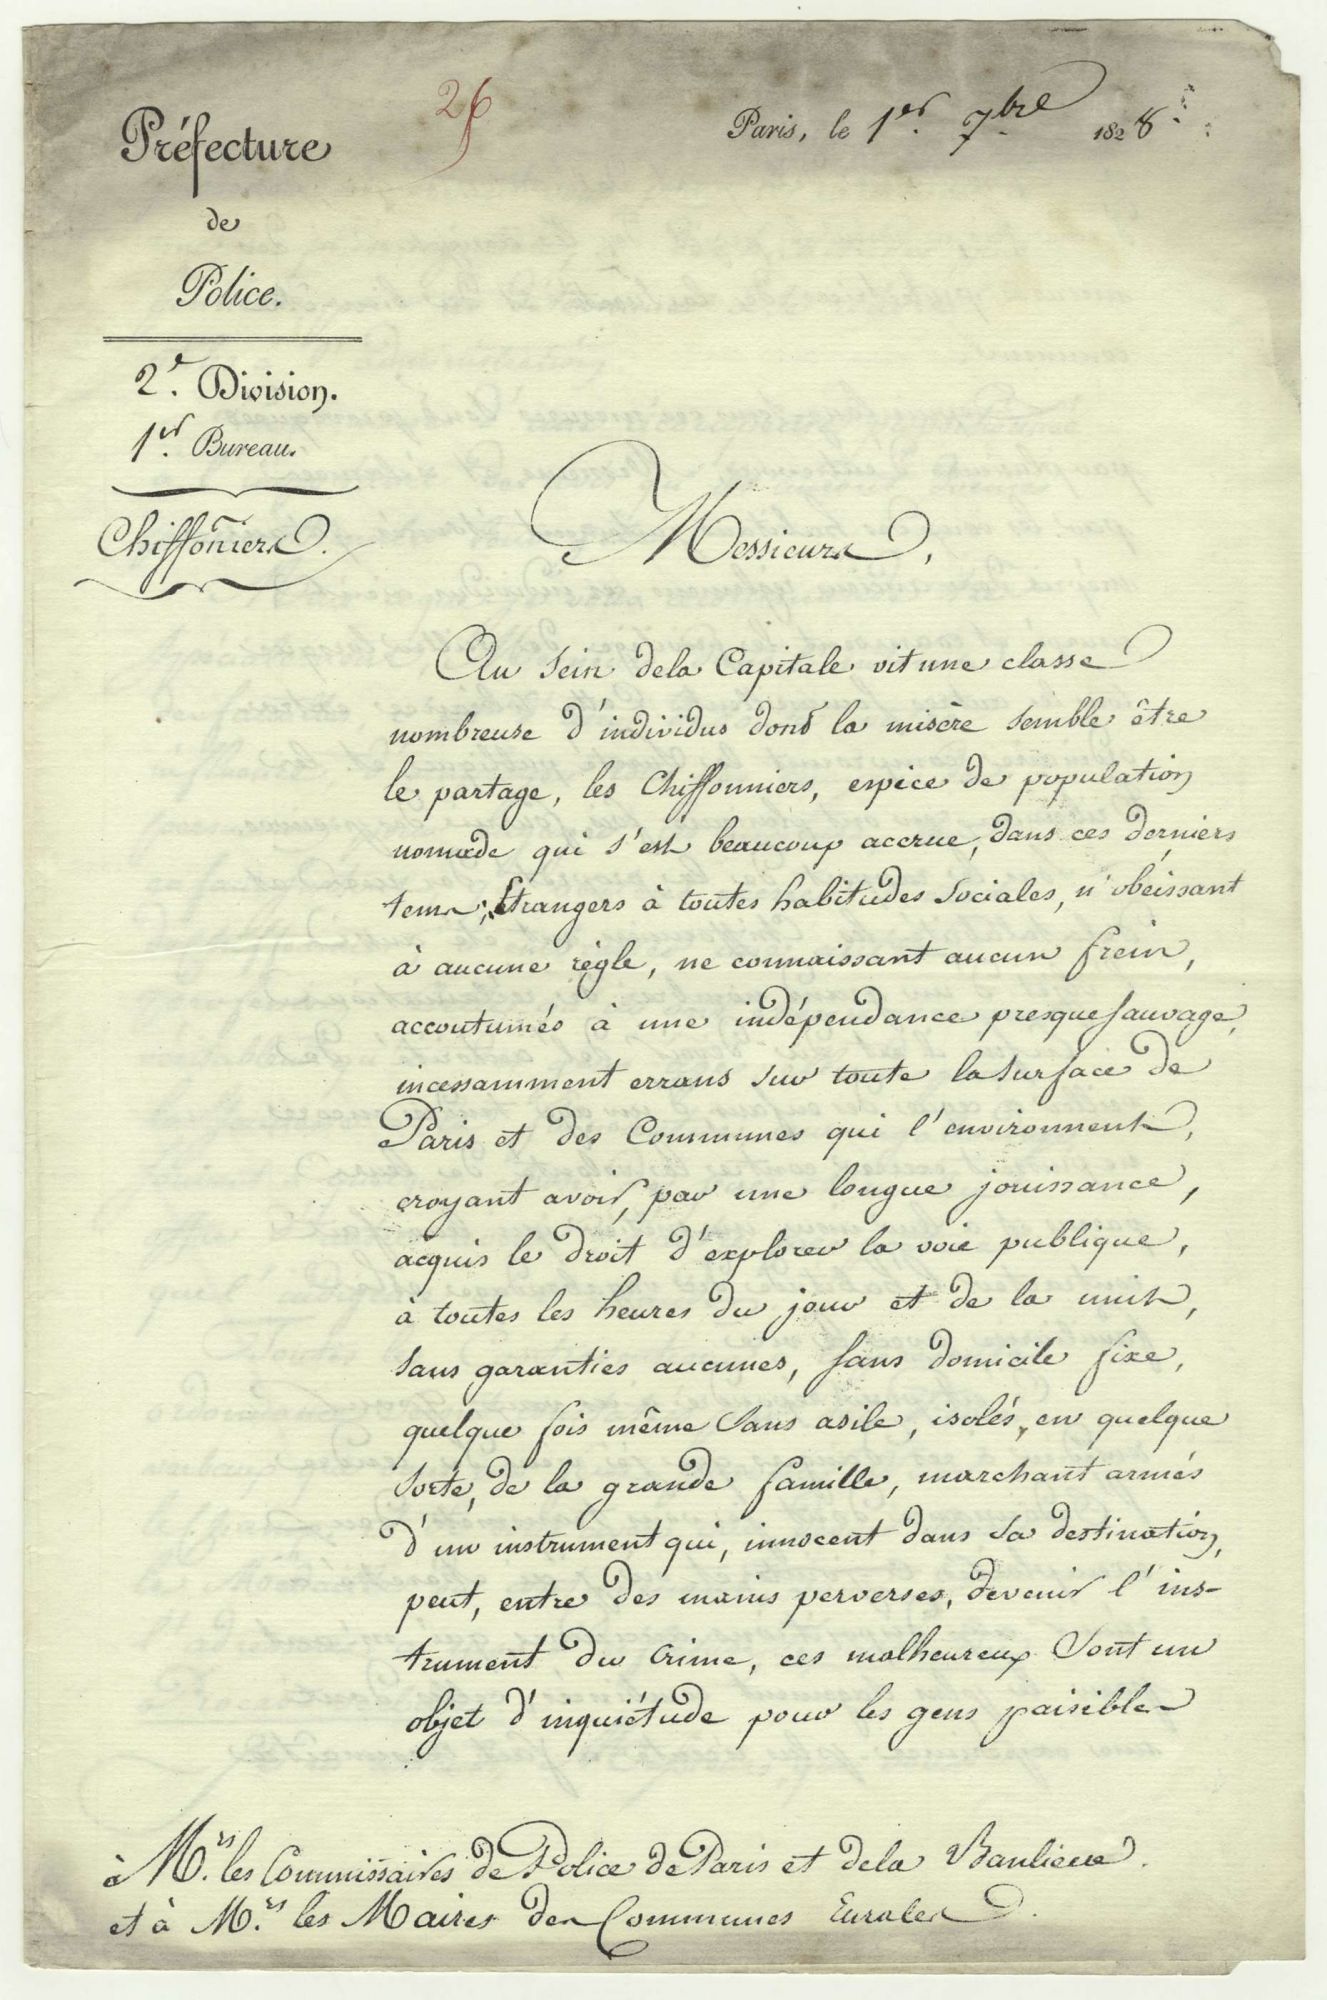 26
Préfecture
de
Police.
2e. Division.
1er. Bureau.
Chiffoniers.
Paris, le 1er. 7bre 1828
Messieurs,
Au sein dela Capitale vit une classe
nombreuse d'individus dont la misère semble être
le partage, les Chiffonniers, espèce de population
nomade qui s'est beaucoup accrue, dans ces derniers
tems; Etrangers à toutes habitudes sociales, n'obéissant
à aucune règle, ne connaissant aucun frein,
accoutumés à une indépendance presque sauvage,
incessamment errans sur toute la surface de
Paris et des Communes qui l'environnent,
croyant avoir, par une longue jouissance,
acquis le droit d'explorer la voie publique,
à toutes les heures du jour et de la nuit,
sans garanties aucunes, sans domicile fixe,
quelque fois même sans asile, isolés, en quelque
sorte, de la grande famille, marchant armés
d'un instrument qui, innocent dans sa destination,
peut, entre des mains perverses, devenir l'ins-
trument du crime, ces malheureux sont un
objet d'inquiétude pour les gens paisibles
à Mrs. les Commissaires de Police de Paris et dela Banlieue.
et à Mrs. les Maires des Communes Rurales.